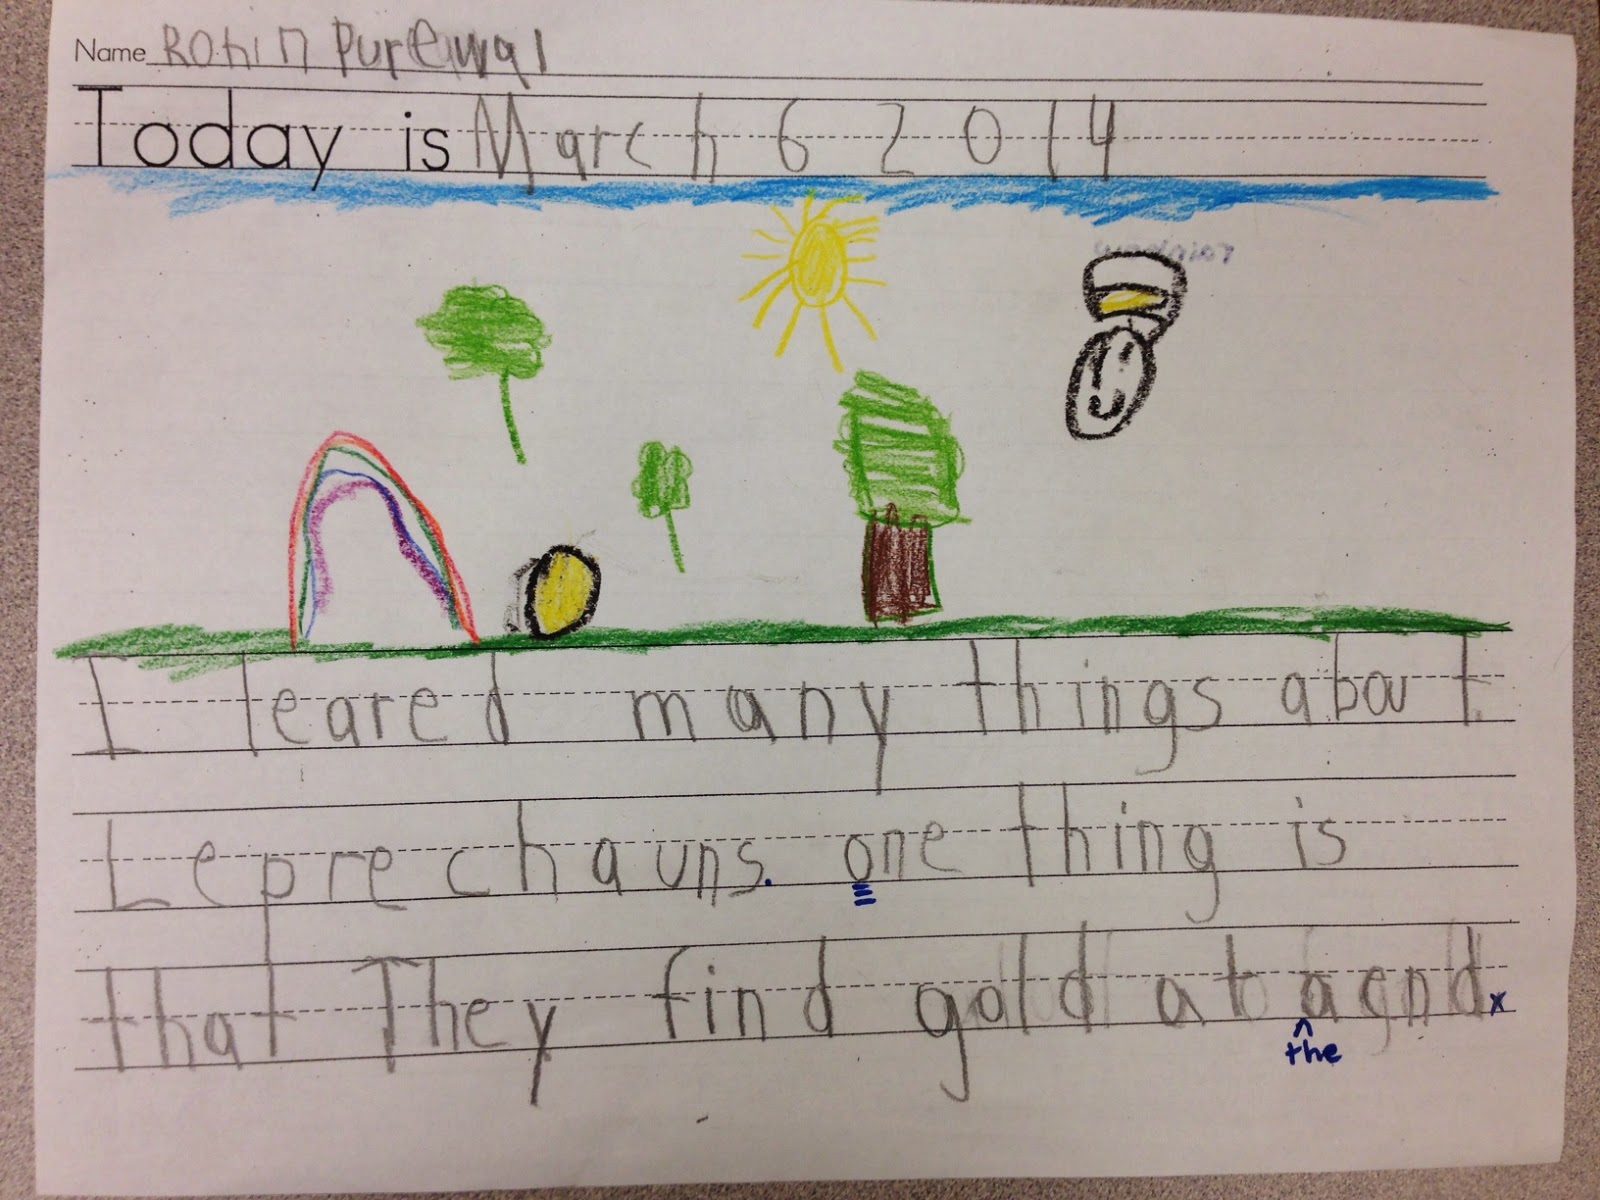 Name Rohin Purewal
Today is March 6 2014
rainbow
I leared many things about
Leprechauns. one thing is
that They find gold at a end.
the